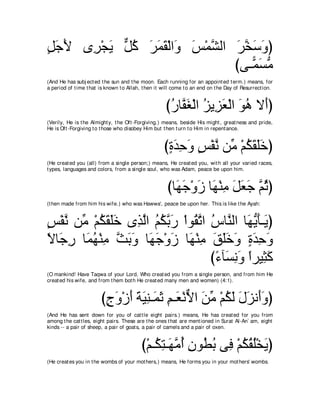 (وَسَخَّرَ الشَّمْسَ وَالْقَمَرَ كُلٌّ يَجْرِى لأَجَلٍ
مُّسَمًّـى)
(And He has subjected the sun and the moon. Each running for an appointed term.) means, for
a period of time that is known to Allah, then it will come to an end on the Day of Resurrection.
(أَلا هُوَ الْعَزِيزُ الْغَفَّارُ)
(Verily, He is the Almighty, the Oft-Forgiving.) means, beside His might, greatness and pride,
He is Oft-Forgiving to those who disobey Him but then turn to Him in repentance.
(خَلَقَكُمْ مِّن نَّفْسٍ وَحِدَةٍ)
(He created you (all) from a single person;) means, He created you, with all your varied races,
types, languages and colors, from a single soul, who was Adam, peace be upon him.
(ثُمَّ جَعَلَ مِنْهَا زَوْجَهَا)
(then made from him his wife.) who was Hawwa', peace be upon her. This is like the Ayah:
(يَـأَيُّهَا النَّاسُ اتَّقُواْ رَبَّكُمُ الَّذِى خَلَقَكُمْ مِّن نَّفْسٍ
وَحِدَةٍ وَخَلَقَ مِنْهَا زَوْجَهَا وَبَثَّ مِنْهُمَا رِجَالاً
كَثِيراً وَنِسَآءً)
(O mankind! Have Taqwa of your Lord, Who created you from a single person, and from him He
created his wife, and from them both He created many men and women) (4:1).
(وَأَنزَلَ لَكُمْ مِّنَ الاٌّنْعَـمِ ثَمَـنِيَةَ أَزْوَجٍ)
(And He has sent down for you of cattle eight pairs.) means, He has created for you from
among the cattles, eight pairs. These are the ones that are mentioned in Surat Al-An`am, eight
kinds -- a pair of sheep, a pair of goats, a pair of camels and a pair of oxen.
(يَخْلُقُكُمْ فِى بُطُونِ أُمَّهَـتِكُـمْ)
(He creates you in the wombs of your mothers,) means, He forms you in your mothers' wombs.